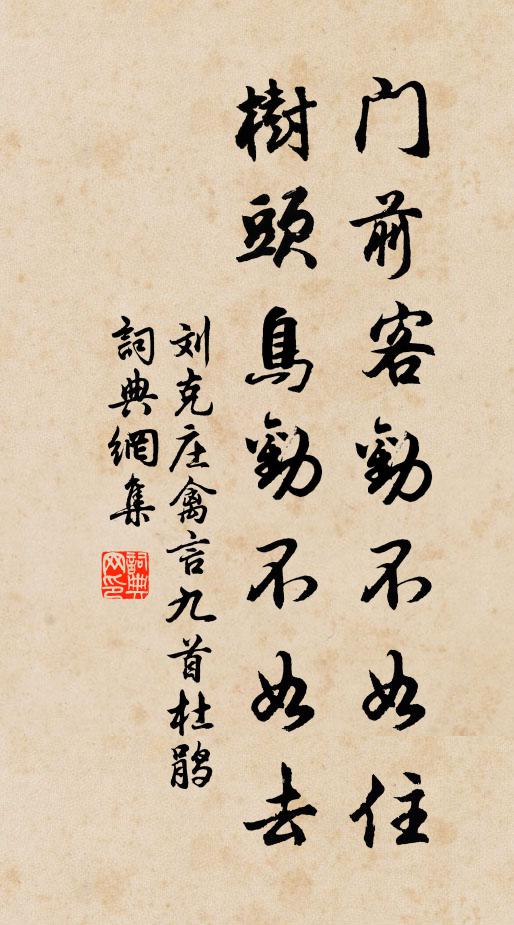 门前客劝不如住
樹頭鳥劝不如去
刘克庄禽言九首杜鹃
詞典網集
詞典
网印